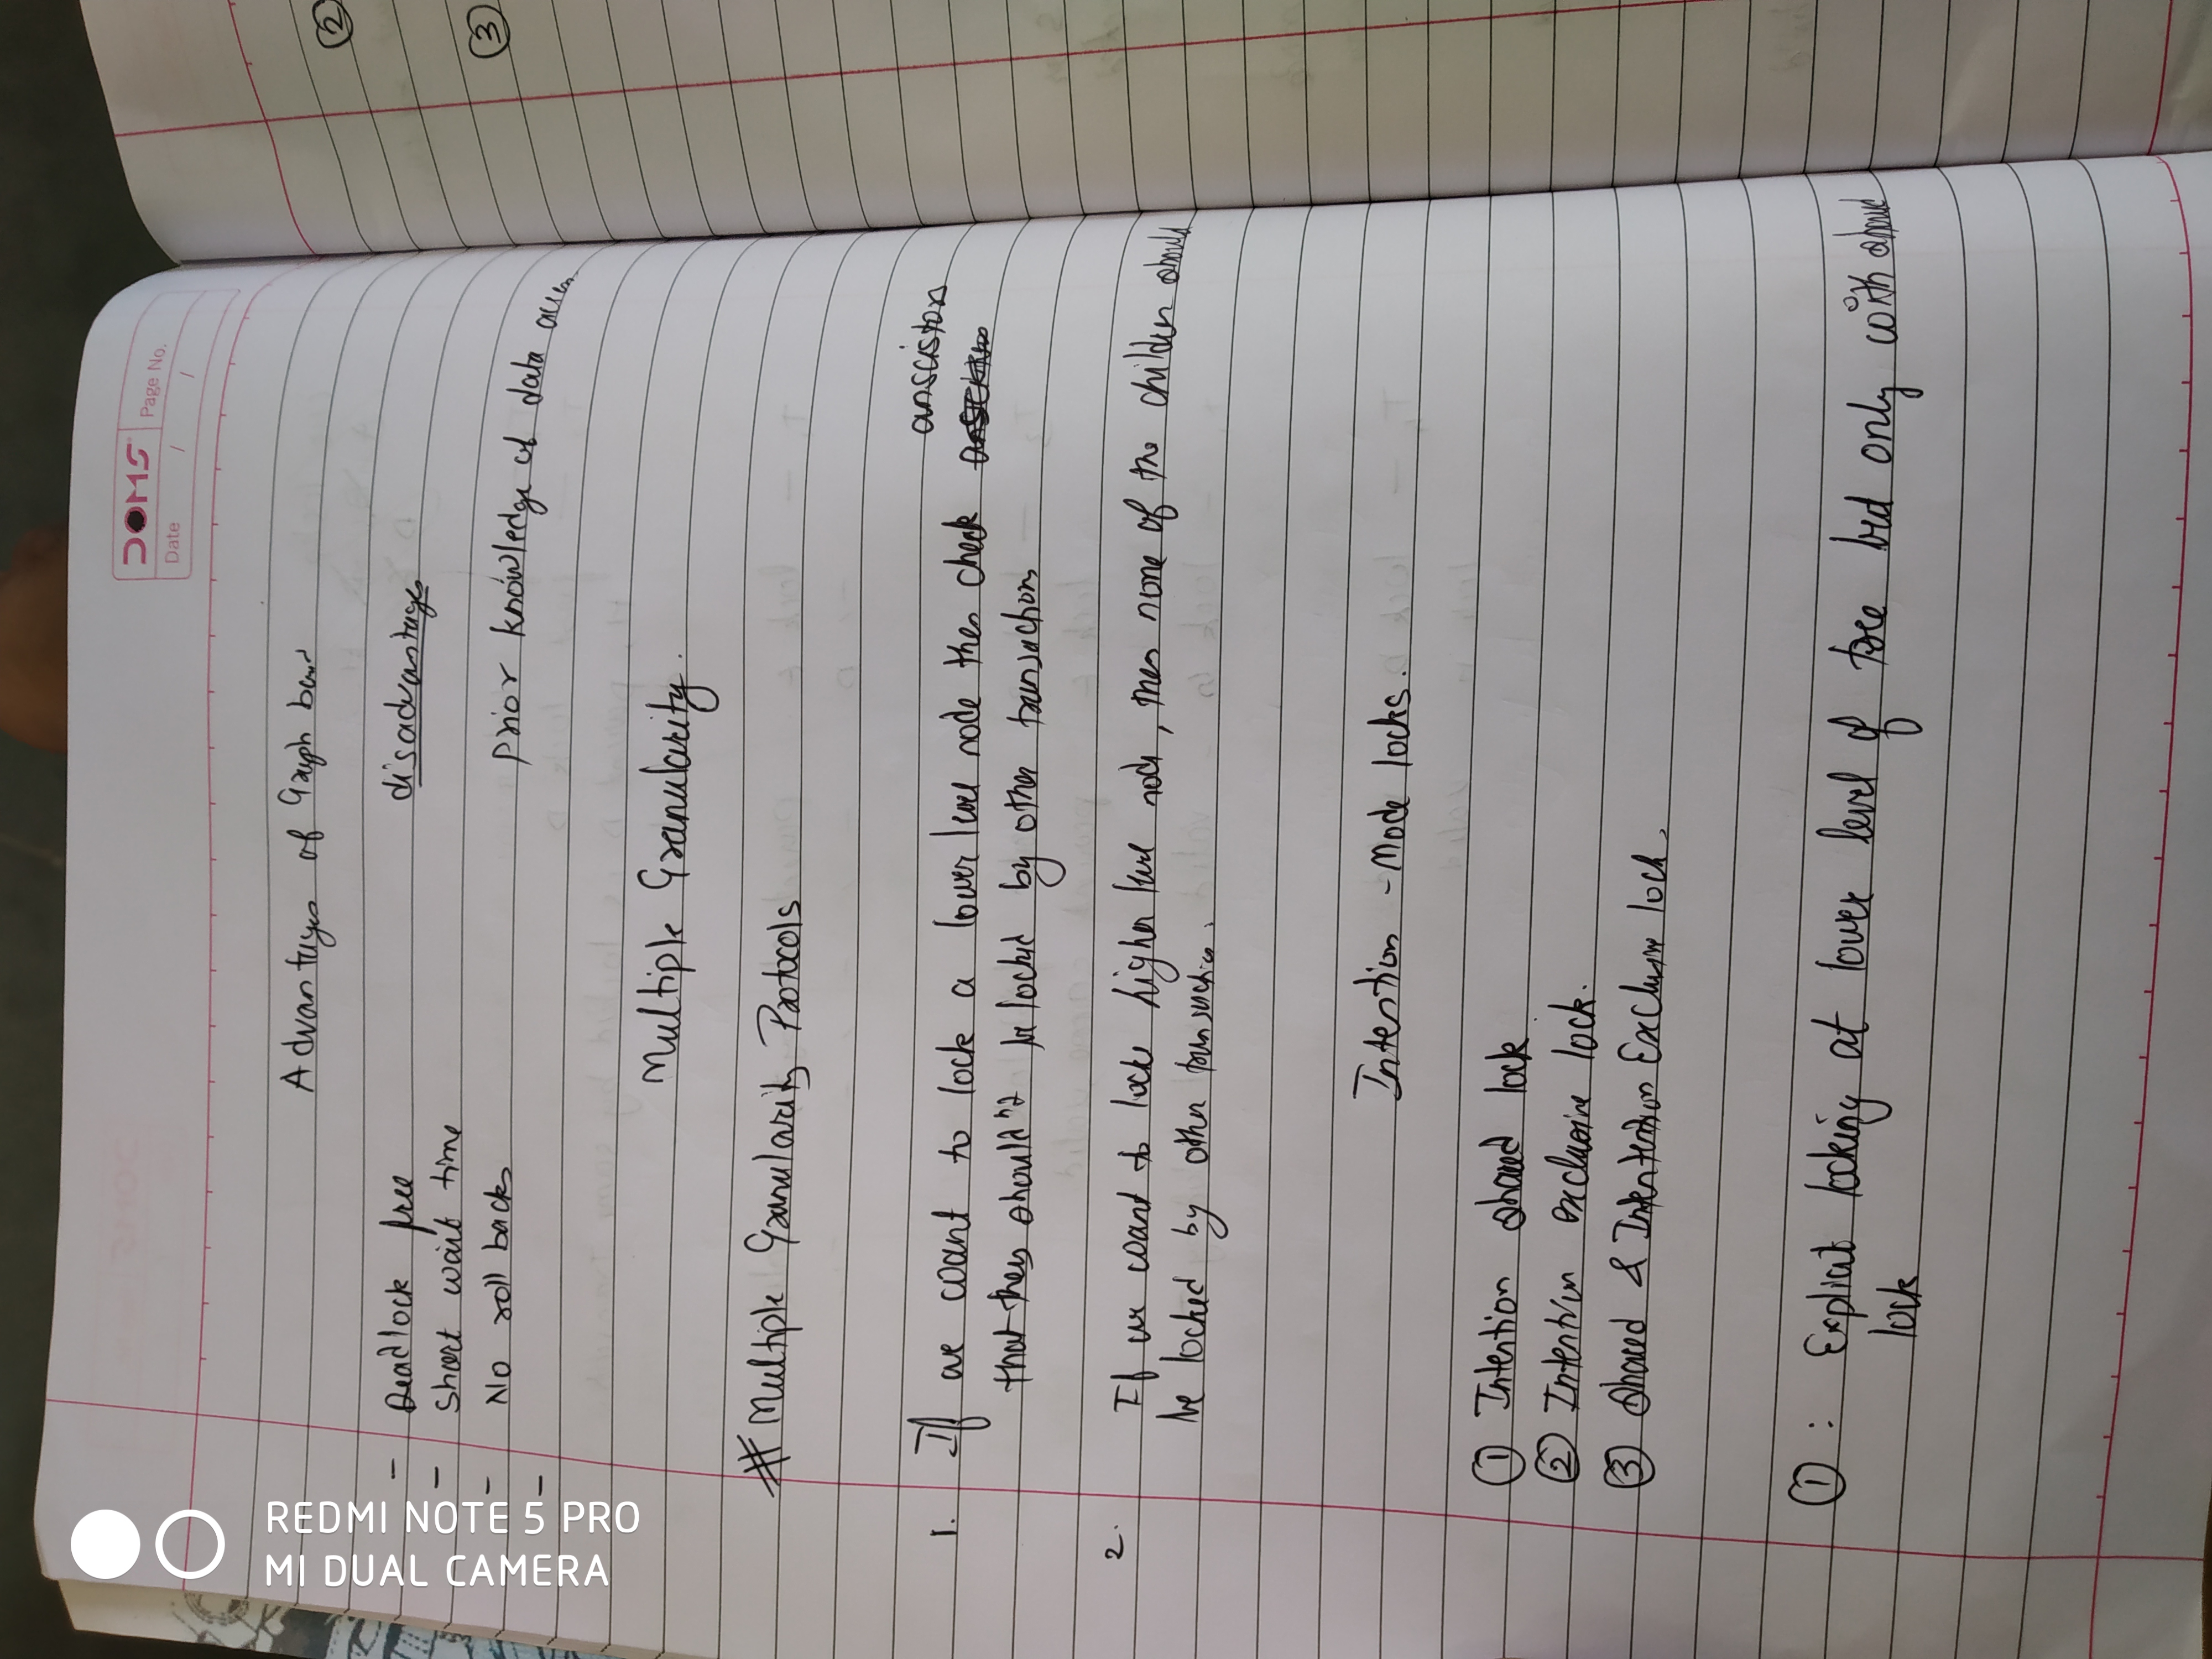 DOMS
Page No.
Date / /
Advantages of Graph
- Deadlock free
disadvantages
- Short wait time
- No roll back
Prior knowledge of data
-
Multiple Granularity.
# Multiple Granularity Protocols
anscistors
1. If we want to lock a lower level node then check
that they should n't be locked by other transactions
2. If we want to lock higher level node, then none of the children should
be locked by other transaction.
Intention - Mode locks.
① Intention shared lock
② Intention exclusive lock.
③ Shared & Intention Exclusive lock.
① : Explicit locking at lower level of tree but only with shared
lock
②
③
REDMI NOTE 5 PRO
MI DUAL CAMERA